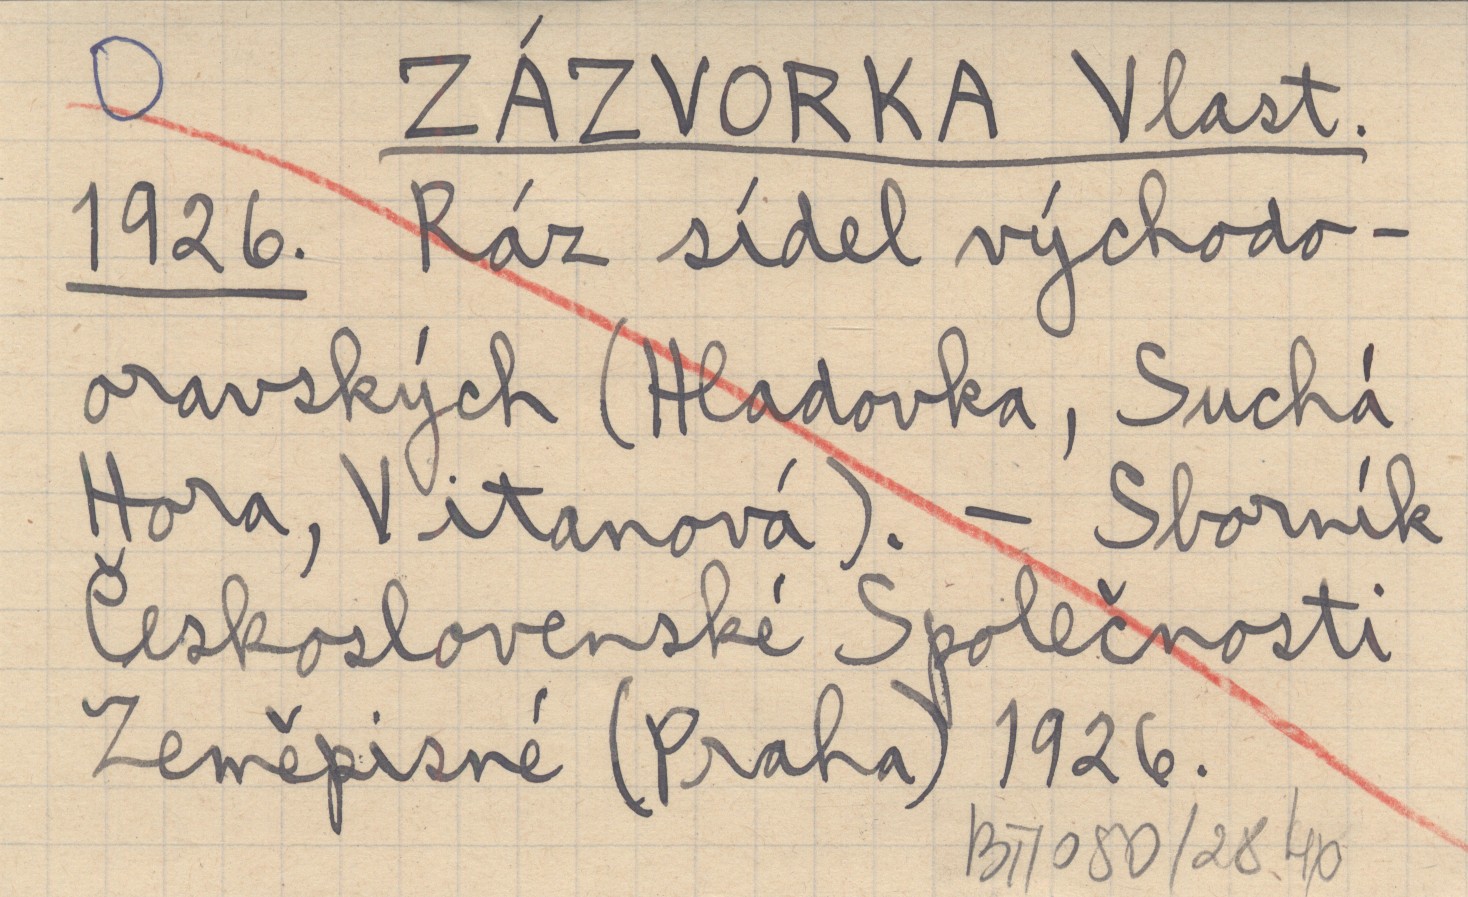 D ZÁZVORKA Vlast.
1926. Ráz sídel východo-
oravských (Hladovka, Suchá
Hora, Vitanová). — Sborník
Československé Společnosti
Zeměpisné (Praha) 1926.